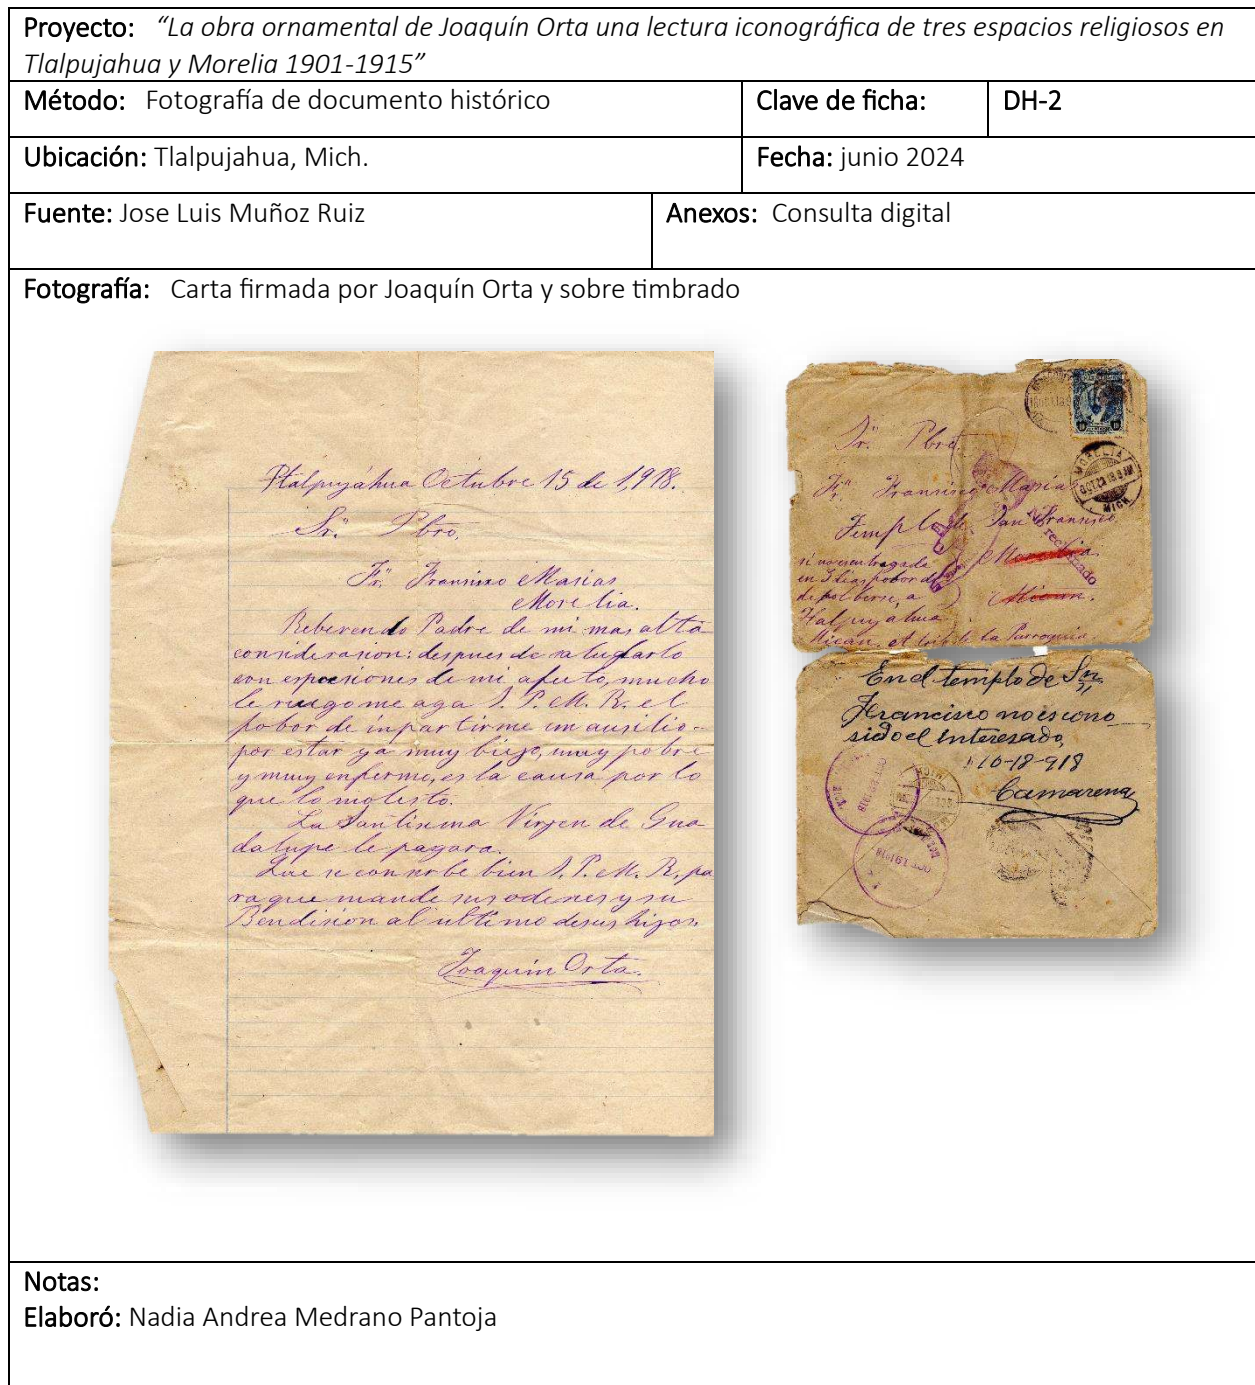 Proyecto: “La obra ornamental de Joaquín Orta una lectura iconográfica de tres espacios religiosos en
Tlalpujahua y Morelia 1901-1915”
Método: Fotografía de documento histórico
Clave de ficha:
DH-2
Ubicación: Tlalpujahua, Mich.
Fecha: junio 2024
Fuente: Jose Luis Muñoz Ruiz
Anexos: Consulta digital
Fotografía: Carta firmada por Joaquín Orta y sobre timbrado
Tlalpujáhua Octubre 15 de 1,918.
Sr. Pbro.
Fr. Fransisco Masias
Morelia.
Reberendo Padre de mi mas alta
consideración: despues de saludarlo
con espreciones de mi afecto, mucho
le ruego me aga S. P. M. R. el
fobor de inpartirme un ausilio
por estar ya muy biejo, muy pobre
y muy enfermo, es la causa por lo
que lo molesto.
La Santisima Virgen de Gua
dalupe le pagara.
Que se conserbe bien S. P. M. R. pa
ra que mande sus odenes y su
Bendision al ultimo desus hijos.
Joaquin Orta.
Sr. Pbro.
Fr. Fransisco Masias
Templo de San Fransisco
Morelia
si no es entregada
en 3 dias fobor de
de bolberse, a
Mican.
Tlalpujahua
Mican. el de la Parroquia
MORELIA
MICH
En el templo de Sn
Francisco no es cono
sido el Interesado,
10-18-918
Camarena
OCT 19 1918
Notas:
Elaboró: Nadia Andrea Medrano Pantoja